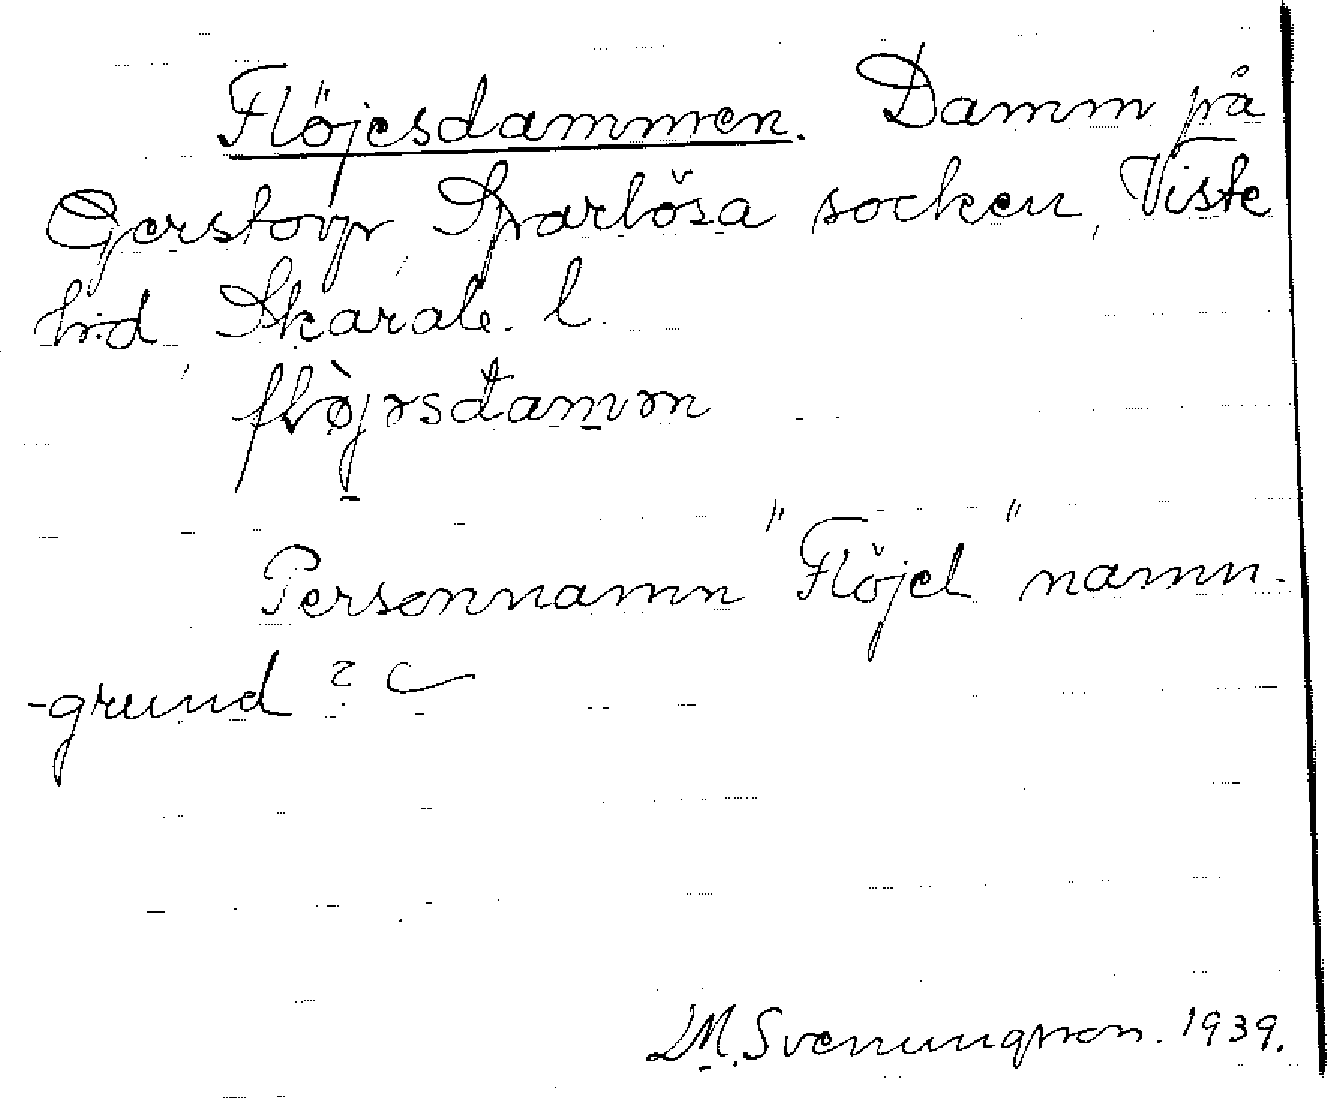 Flöjesdammen. Damm på
Gerstorp, Sparlösa socken, Viste
hd, Skarab. l.
flø̀jəsdamm
Personnamn "Flöjel" namn-
-grund?
D.M. Svenungsson. 1939.